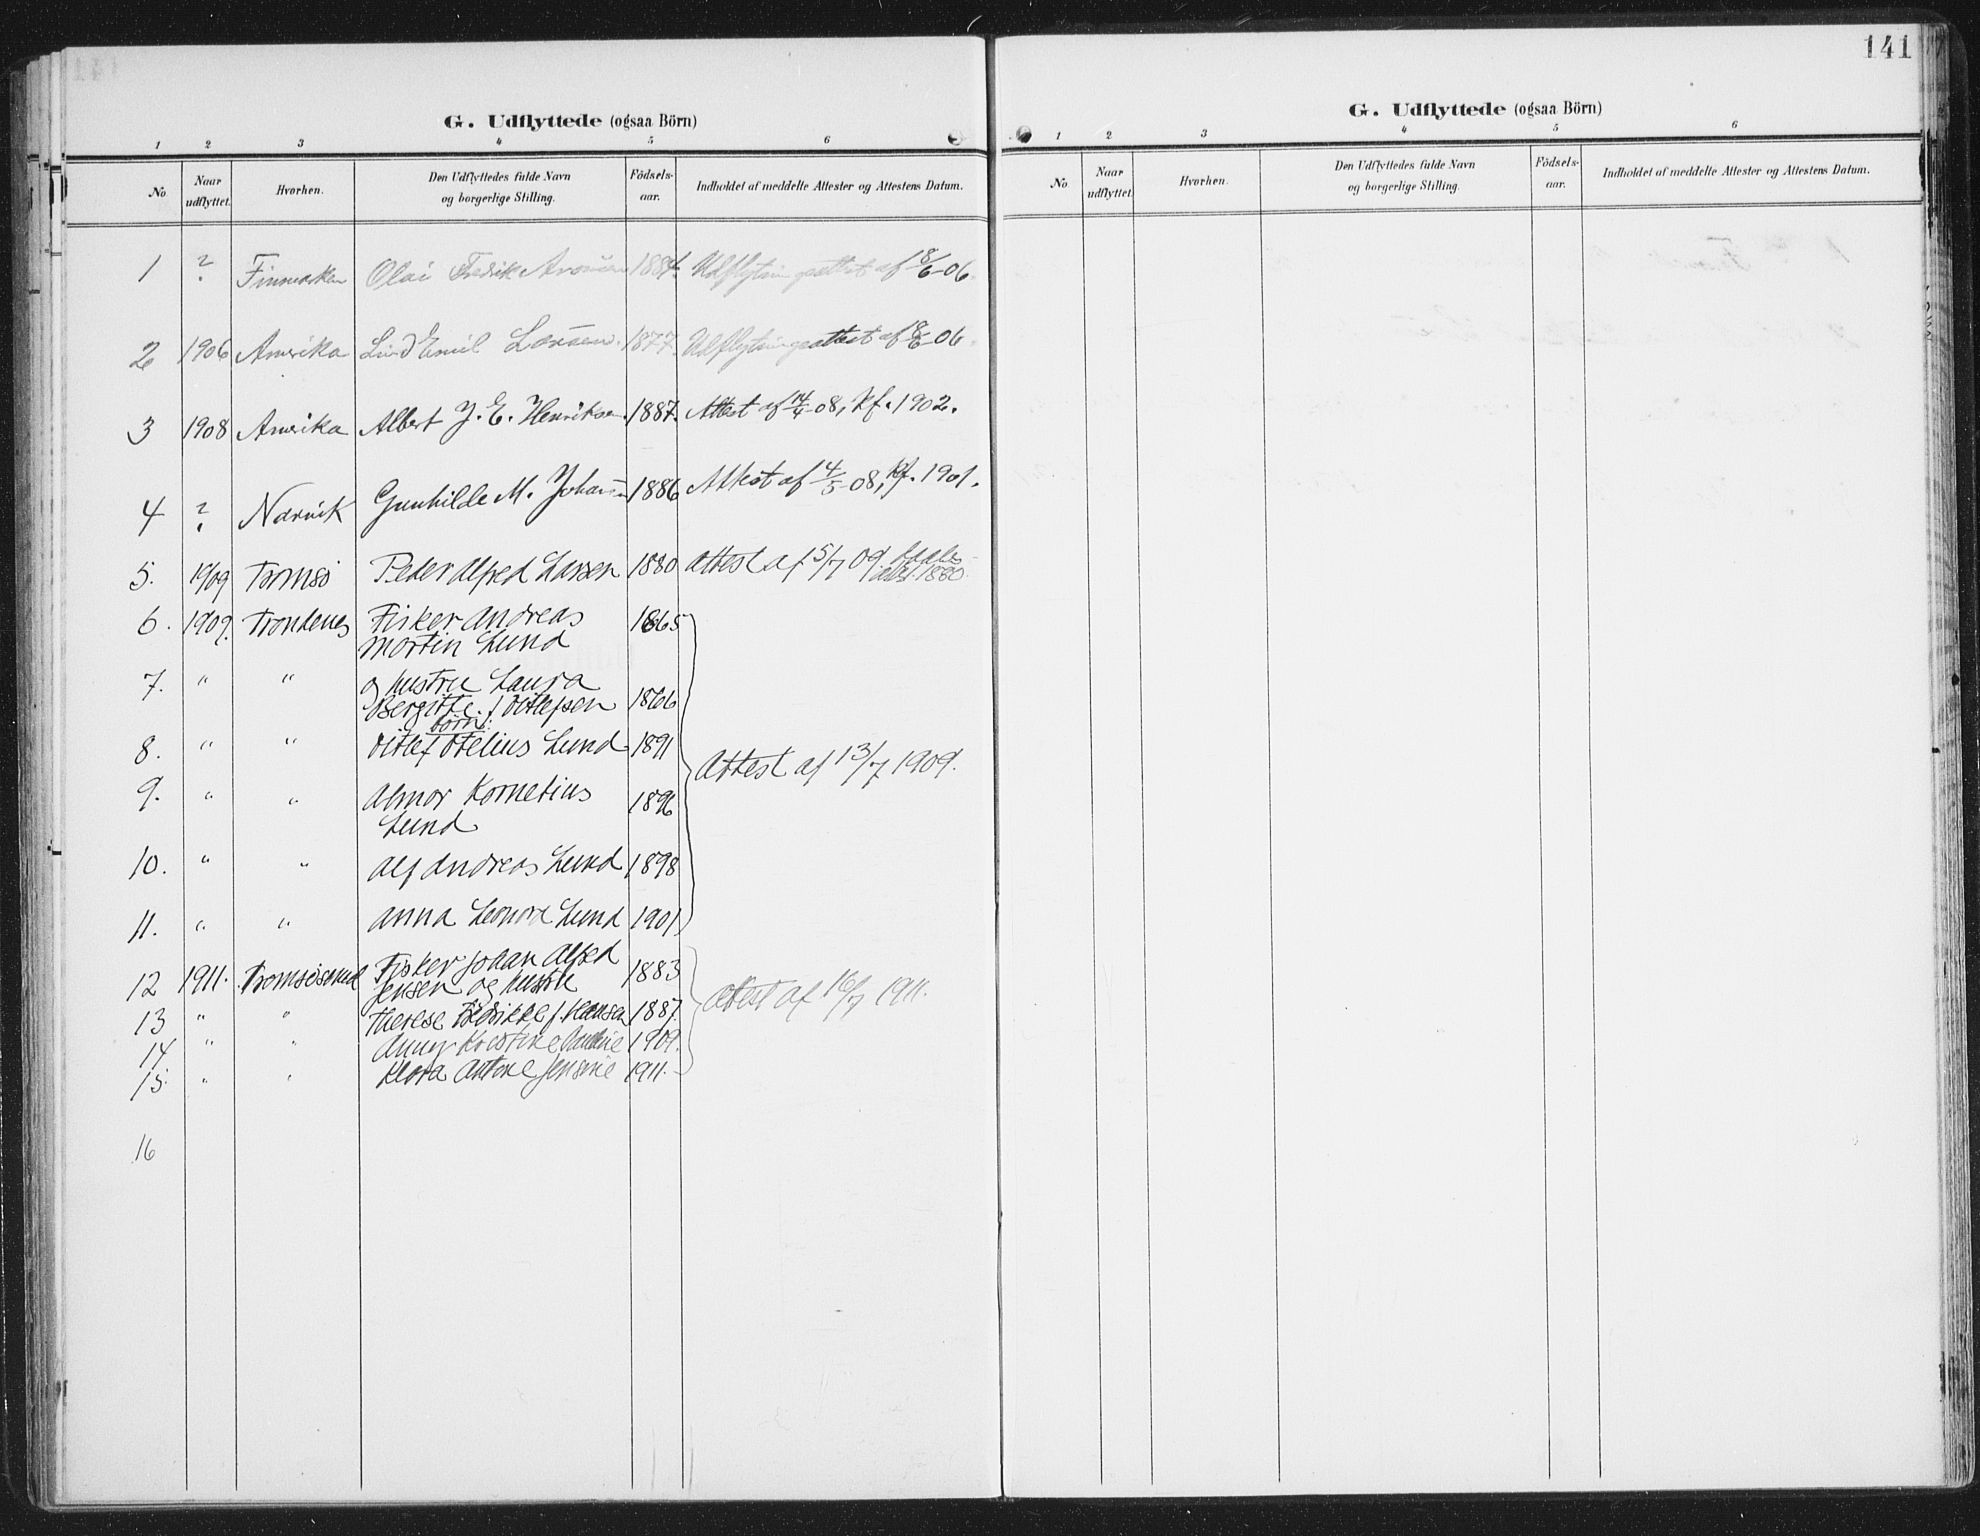 G. Udflyttede (ogsaa Börn)
1 2 3 4 5 6
No Naar udflyttet. Hvorhen. Den Udflyttedes fulde Navn og borgerlige Stilling. Födsels-aar. Indholdet af meddelte Attester og Attestens Datum.
1 ? Finmarken Olai Fredik 1884. Udflytningsattest af 18/6-06.
2 1906 Amerika Emil Larsen. 1877. Udflytningsattest af 18/6-06.
3 1908 Amerika Albert J. E. Henriksen. 1887. Attest af 14/4-08, kf. 1902.
4 ? Narvik Gunhilde M. Johansen 1886 Attest af 4/5-08, kf. 1901.
5. 1909 Tromsö Peder Alfred Larsen 1880 Attest af 15/7 09. 1880.
6. 1909. Trondenes Fisker Andreas 1865
Martin Lund
7. " " og hustru Laura
Bergitte f. Ditlefsen 1866
børn:
8. " " Ditlef Otelius Lund 1891
Attest af 13/7 1909.
9. " " Almar Kornelius 1896
Lund
10. " " Alf Andreas Lund 1898
11. " " Anna Leonora Lund 1901
12 1911. Tromsösund Fisker Johan Alfred 1883
Jensen og hustru
Attest af 16/7 1911.
13 " " Therese Fredrikke f. Hansen 1887.
14 " " Anny Kristine 1909.
15. " " Klara Antone Jensine 1911.
16
141
G. Udflyttede (ogsaa Börn)
1 2 3 4 5 6
No Naar udflyttet. Hvorhen. Den Udflyttedes fulde Navn og borgerlige Stilling. Födsels-aar. Indholdet af meddelte Attester og Attestens Datum.